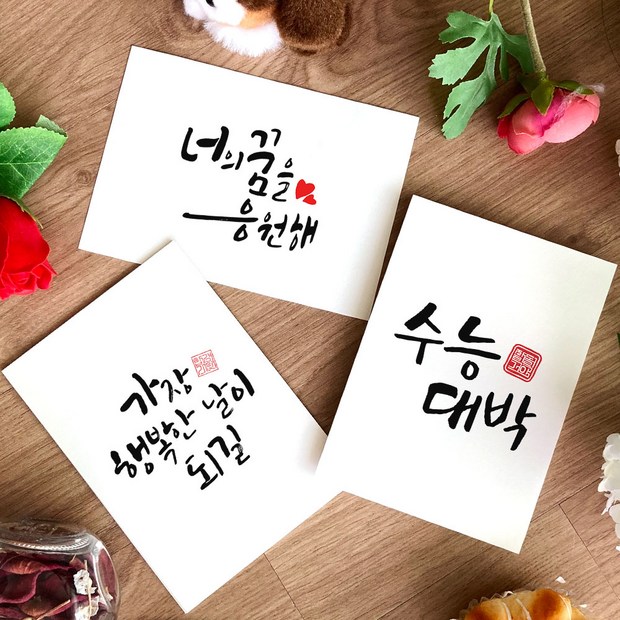 너의 꿈을
응원해
가장
행복한 날이
되길
수능
대박